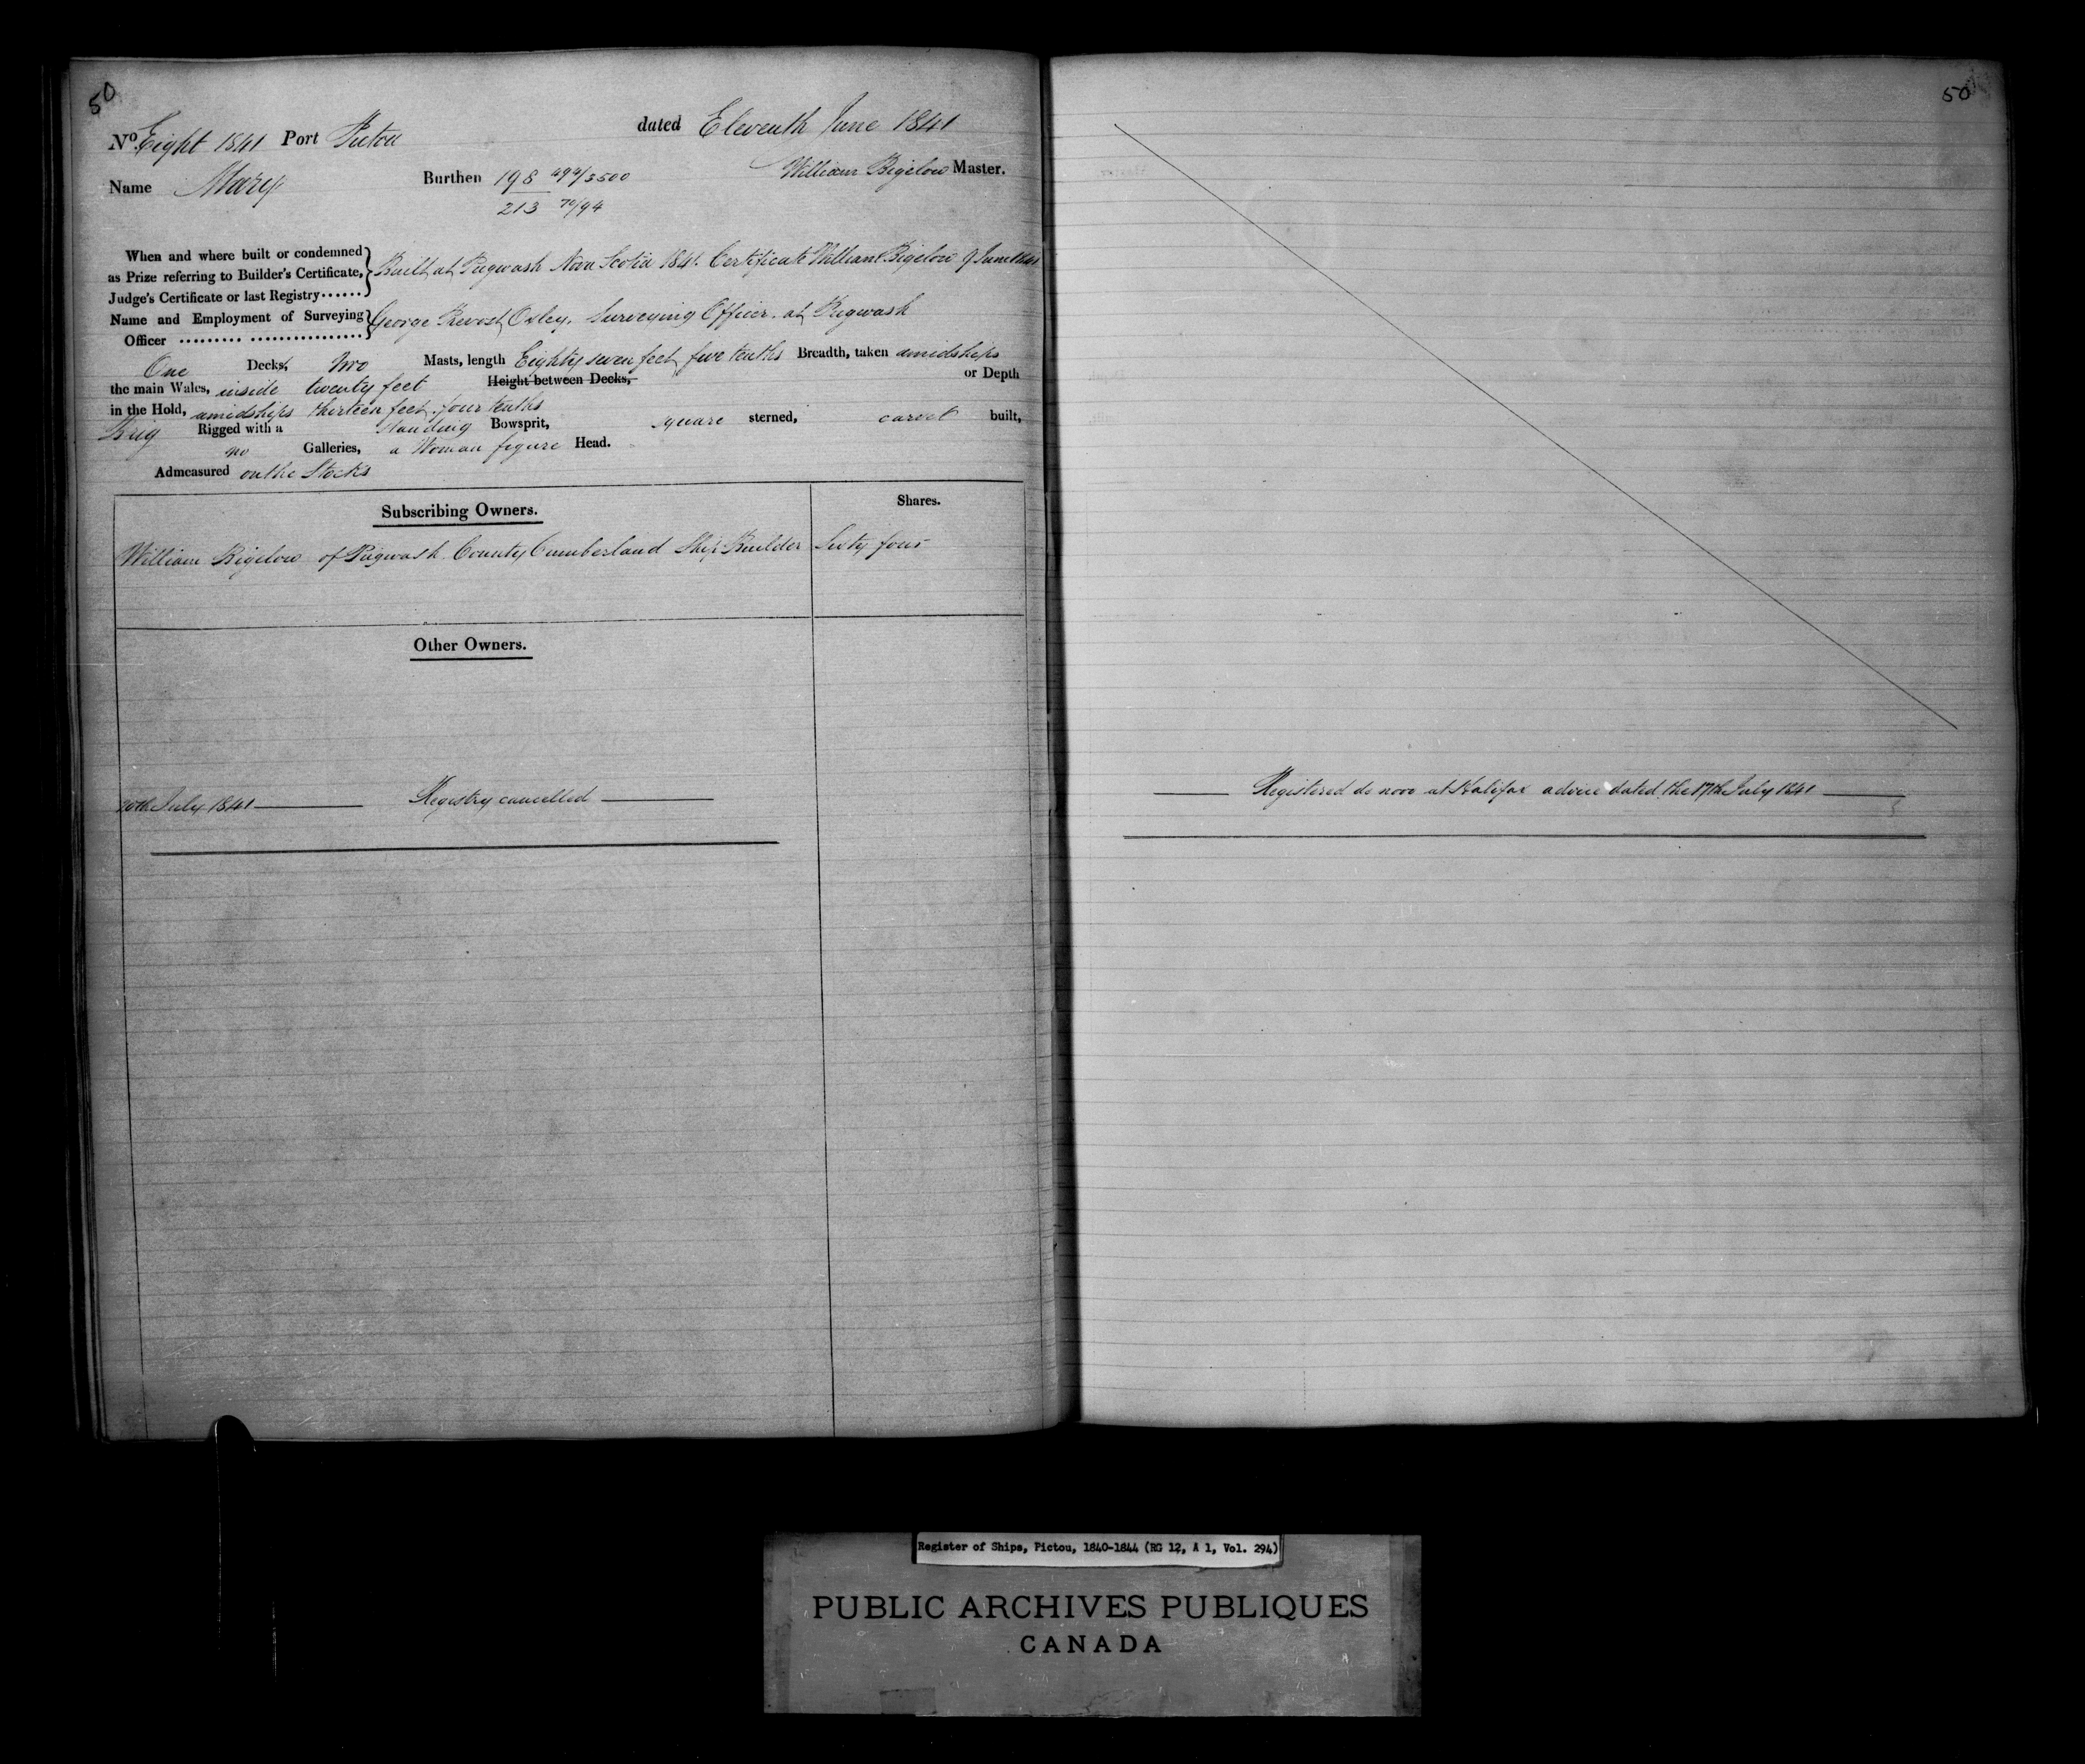 50
No. Eight 1841 Port Pictou dated Eleventh June 1841
Name Mary Burthen 198 494/3500 William Bigelow Master.
213 70/94
When and where built or condemned
as Prize referring to Builder's Certificate, Built at Pugwash Nova Scotia 1841. Certificate William Bigelow 9 June 1841
Judge's Certificate or last Registry
Name and Employment of Surveying George Prevost Oxley, Surveying Officer. at Pugwash
Officer
One Decks, Two Masts, length Eighty seven feet five tenths Breadth, taken amidships
the main Wales, inside twenty feet Height between Decks, or Depth
in the Hold, amidships thirteen feet four tenths
Brig Rigged with a standing Bowsprit, square sterned, carvel built,
no Galleries, a Woman figure Head.
Admeasured on the Stocks
Subscribing Owners. Shares.
William Bigelow of Pugwash County Cumberland Ship Builder Sixty four
Other Owners.
20th July 1841 Registry cancelled
50
Registered de novo at Halifax advice dated the 17th July 1841
Register of Ships, Pictou, 1840-1844 (RG 12, A 1, Vol. 294)
PUBLIC ARCHIVES PUBLIQUES
CANADA